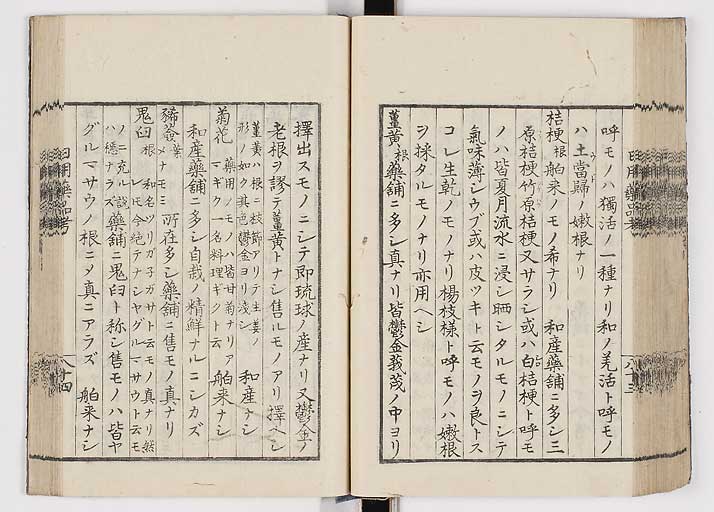 呼モノハ獨活ノ一種ナリ和ノ羌活ト呼モノ
ハ土當歸ノ嫩根ナリ
桔梗根 舶来ノモノ希ナリ 和産藥舗ニ多シ三
原桔梗竹原桔梗又サラシ或ハ白桔梗ト呼モ
ノハ皆夏月流水ニ浸シ晒シタルモノニシテ
氣味薄シウブ或ハ皮ツキト云モノヲ良トス
コレ生乾ノモノナリ楊枝様ト呼モノハ嫩根
ヲ採タルモノナリ亦用ヘシ
薑黄根 藥舗ニ多シ真ナリ皆鬱金莪茂ノ中ヨリ
擇出スモノニシテ即琉球ノ産ナリ又鬱金ノ
老根ヲ謬テ薑黄トナシ售ルモノアリ擇ヘシ
薑黄ハ根ニ枝節アリテ生姜ノ
形ノ如ク其色鬱金ヨリ浅シ 和産ナシ
菊花 藥用ノモノハ皆甘菊ナリア
マギク一名料理ギクト云 舶来ナシ
和産藥舗ニ多シ自栽ノ精鮮ナルニシカズ
豨薟葉 メナモミ 所在多シ藥舗ニ售モノ真ナリ
鬼臼根 和名ツリガ子ガサト云モノ真ナリ然
レモ今絶テナシヤグルマサウト云モ
ノニ充ル説
ハ穏ナラズ 藥舗ニ鬼臼ト称シ售モノハ皆ヤ
グルマサウノ根ニメ真ニアラズ 舶来ナシ
日用藥品考
八十三
日用藥品考
八十四